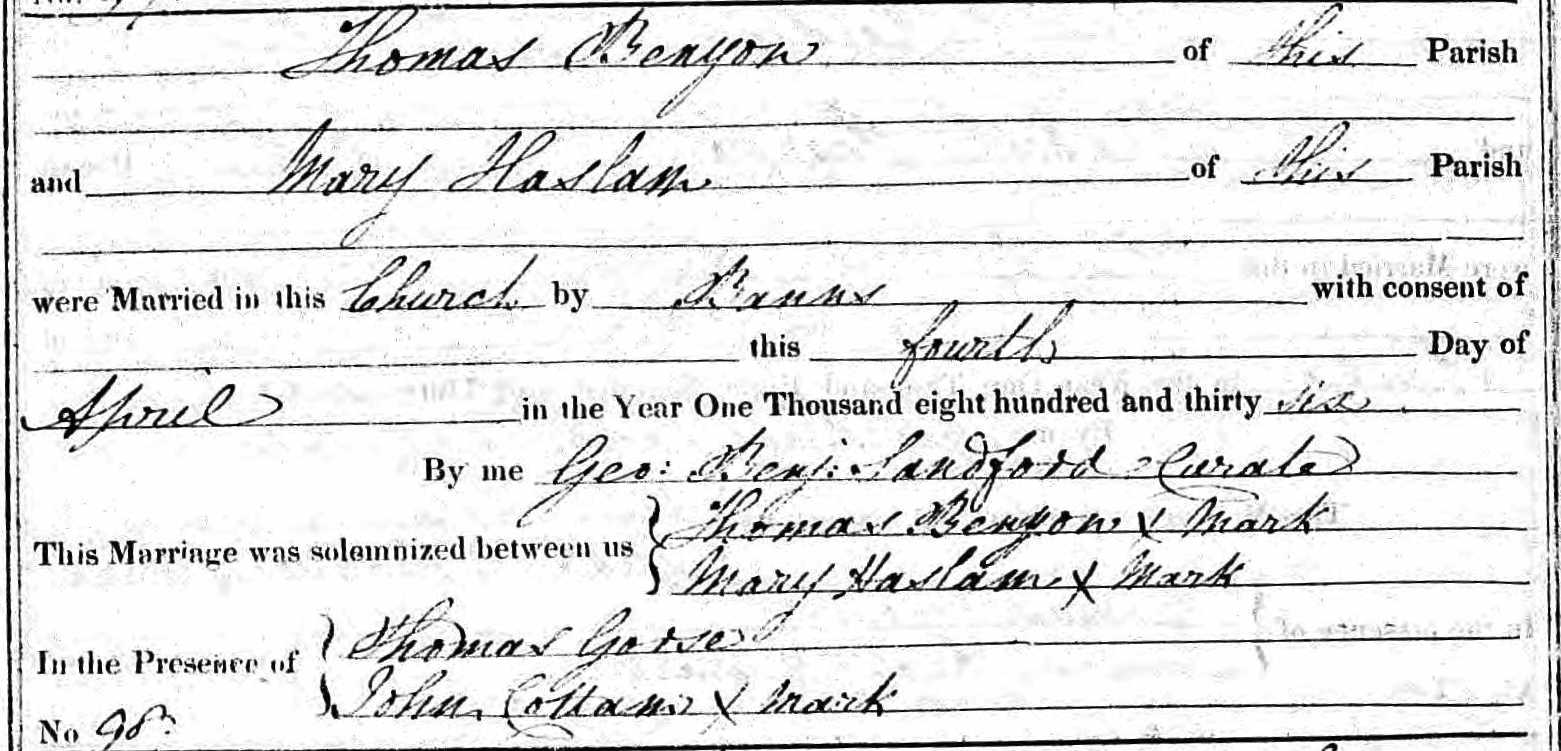 Thomas Benyon of this Parish
and Mary Haslam of this Parish
were Married in this Church by Banns with consent of
this fourth Day of
April in the Year One Thousand eight hundred and thirty six
By me Geo: Benj: Sandford Curate
This Marriage was solemnized between us { Thomas Benyon X Mark
Mary Haslam X Mark
In the Presence of { Thomas Gorse
John Cottam X Mark
No 98